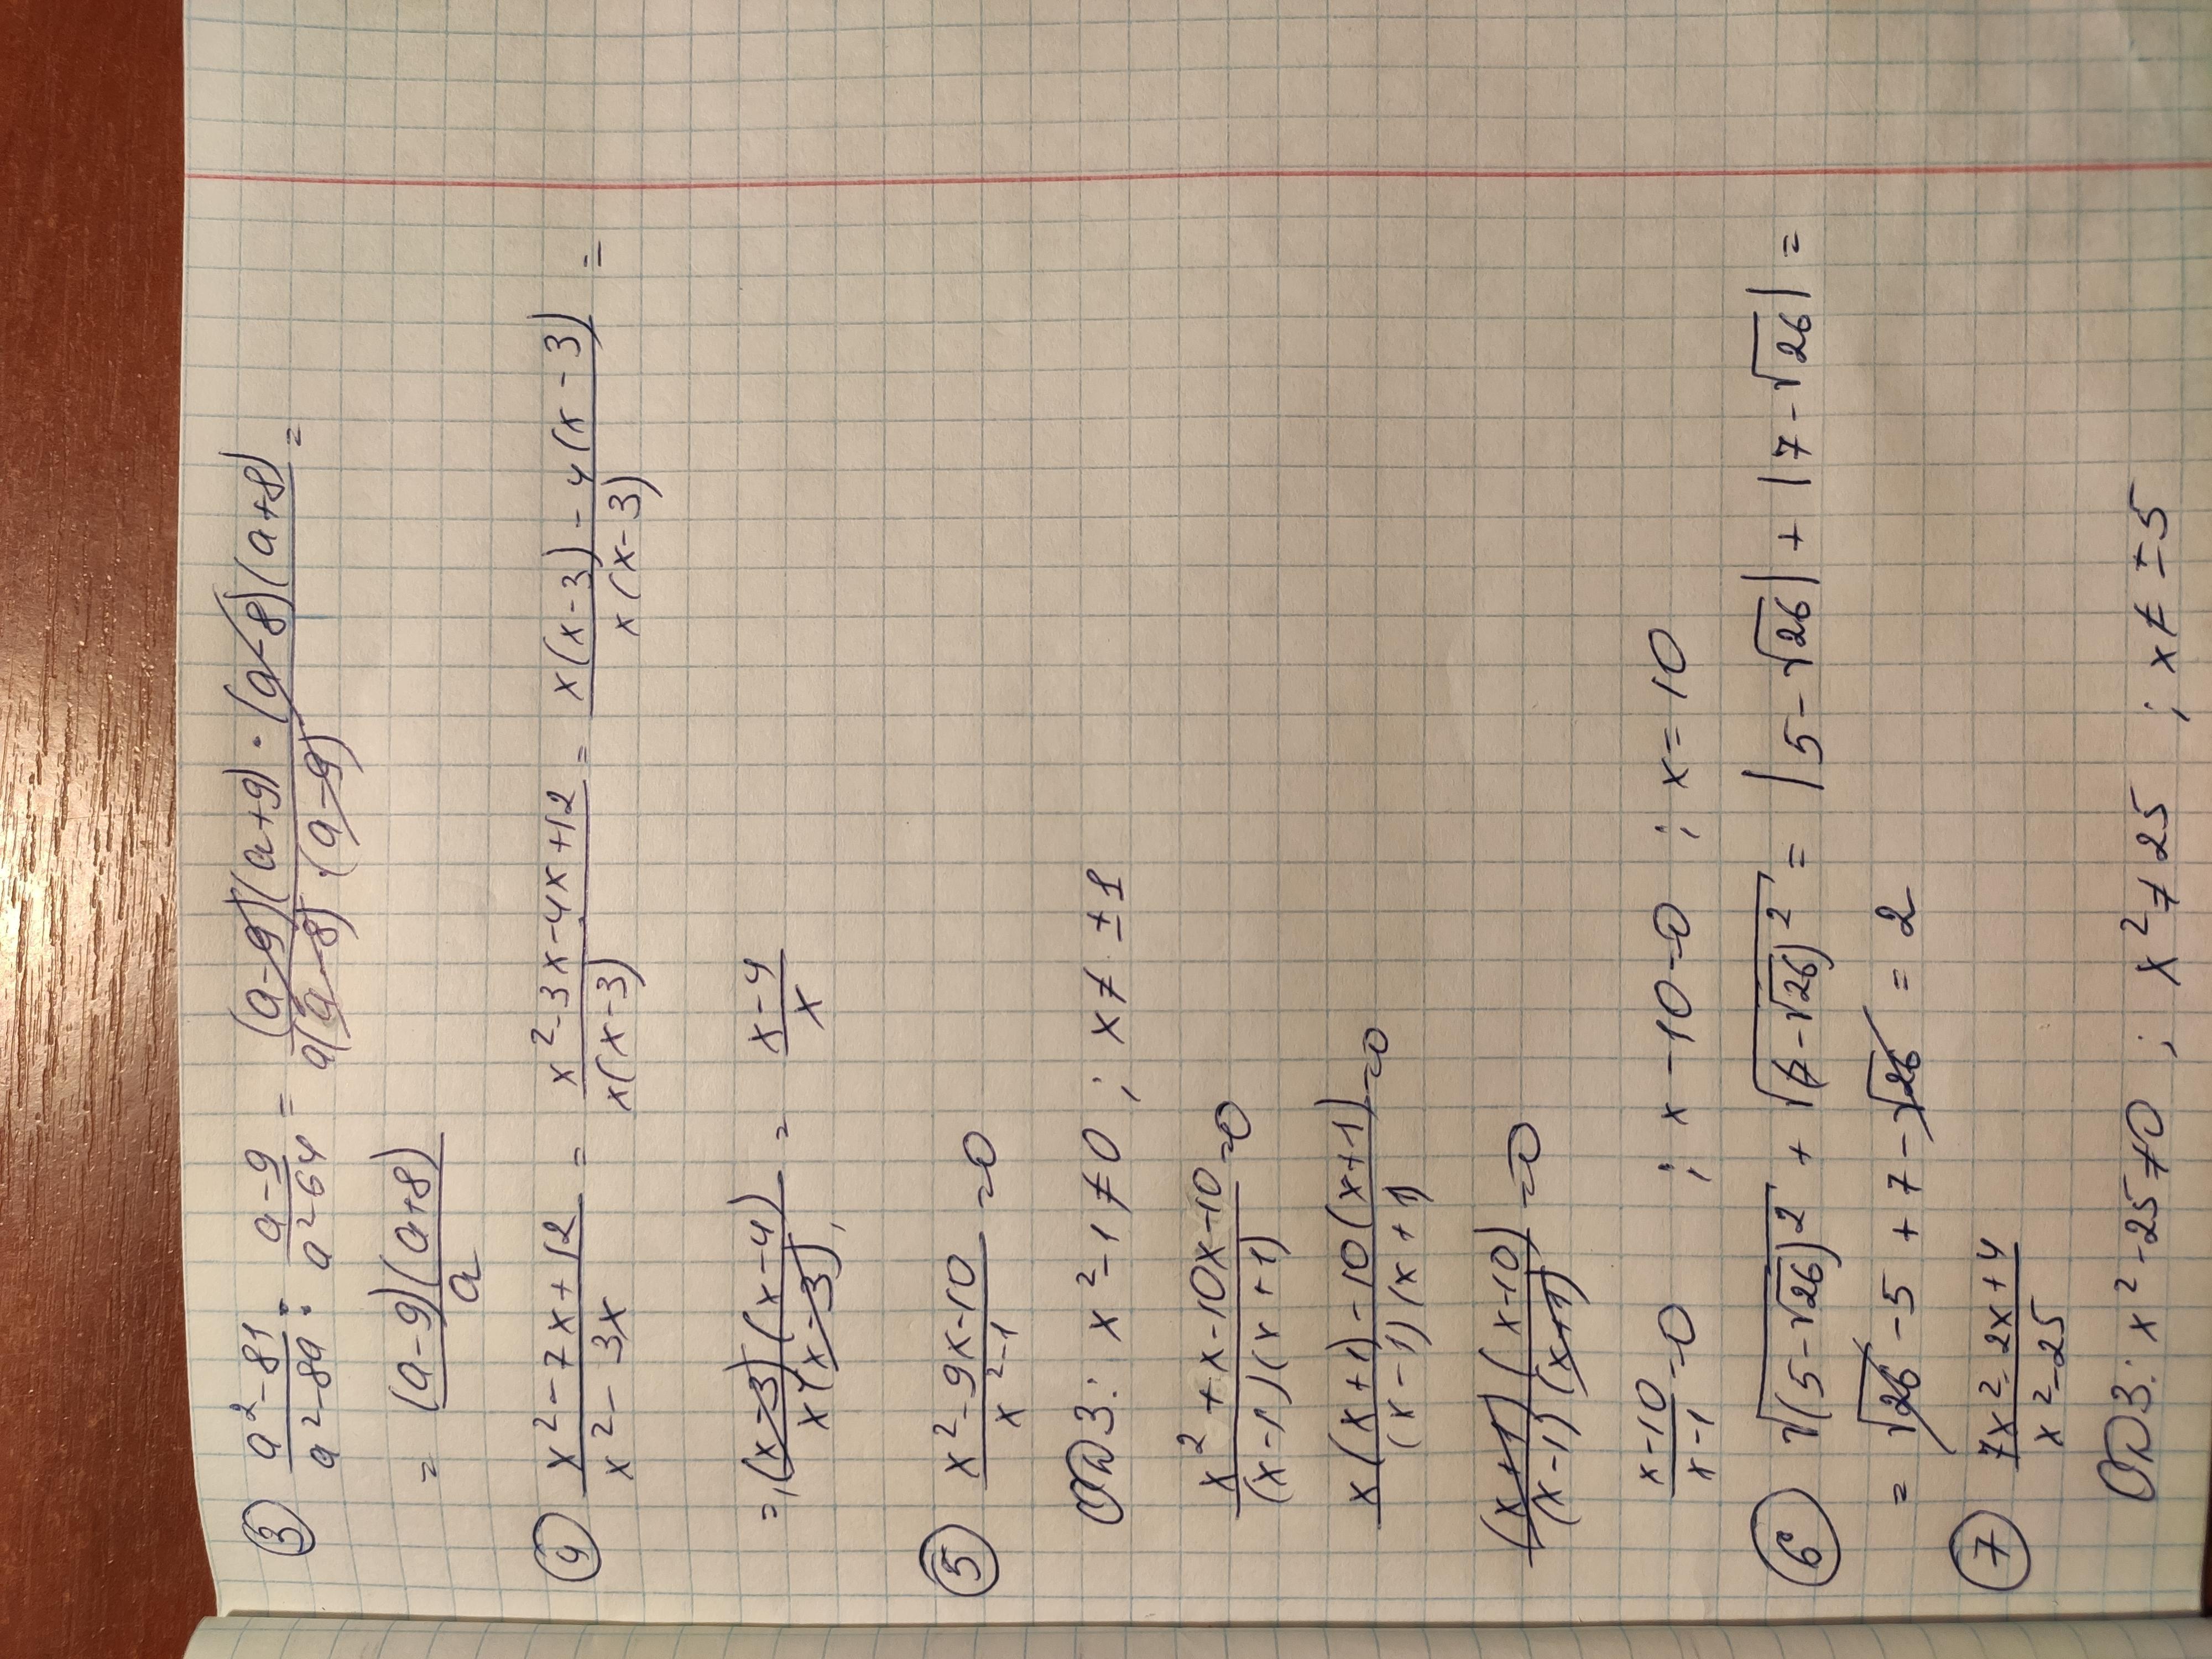 ③ (a²-81)/(a²-8a) : (a-9)/(a²-64) = ((a-9)(a+9)·(a-8)(a+8))/(a(a-8)·(a-9)) =
= ((a-9)(a+8))/a
④ (x²-7x+12)/(x²-3x) = (x²-3x-4x+12)/(x(x-3)) = (x(x-3)-4(x-3))/(x(x-3)) =
= ((x-3)(x-4))/(x(x-3)) = (x-4)/x
⑤ (x²-9x-10)/(x²-1) =0
ОДЗ: x²-1≠0 ; x≠ ±1
(x²+x-10x-10)/((x-1)(x+1)) =0
(x(x+1)-10(x+1))/((x-1)(x+1)) =0
((x+1)(x-10))/((x-1)(x+1)) =0
(x-10)/(x-1) =0 ; x-10=0 ; x=10
⑥ √(5-√26)² + √(7-√26)² = |5-√26| + |7-√26| =
= √26 -5 + 7 - √26 = 2
⑦ (7x²-2x+4)/(x²-25)
ОДЗ: x²-25≠0 ; x²≠25 ; x≠±5